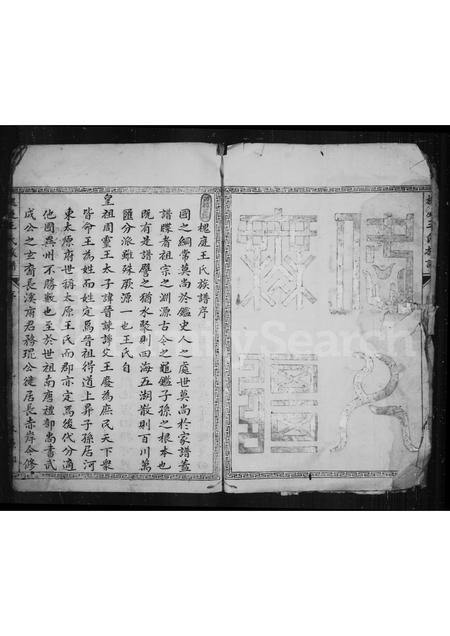 槐庭王氏族譜序
國之綱常莫尚於鑑史人之處世莫尚於家譜蓋
譜牒者祖宗之淵源古今之龜鑑子孫之根本也
既有是譜譬之猶水聚則四海五湖散則百川萬
匯分派雖殊厥源一也王氏自
皇祖周靈王太子諱晉諫諍父王廢為庶民天下衆
皆命王為姓而姓定焉晉祖得道上昇子孫居河
東太原府世稱太原王氏而郡亦定焉後代分適
他國異州不勝數也至於世祖南唐禮部尚書武
成公之玄裔長溪甫君務琨公徙居長赤岸令修
FamilySearch